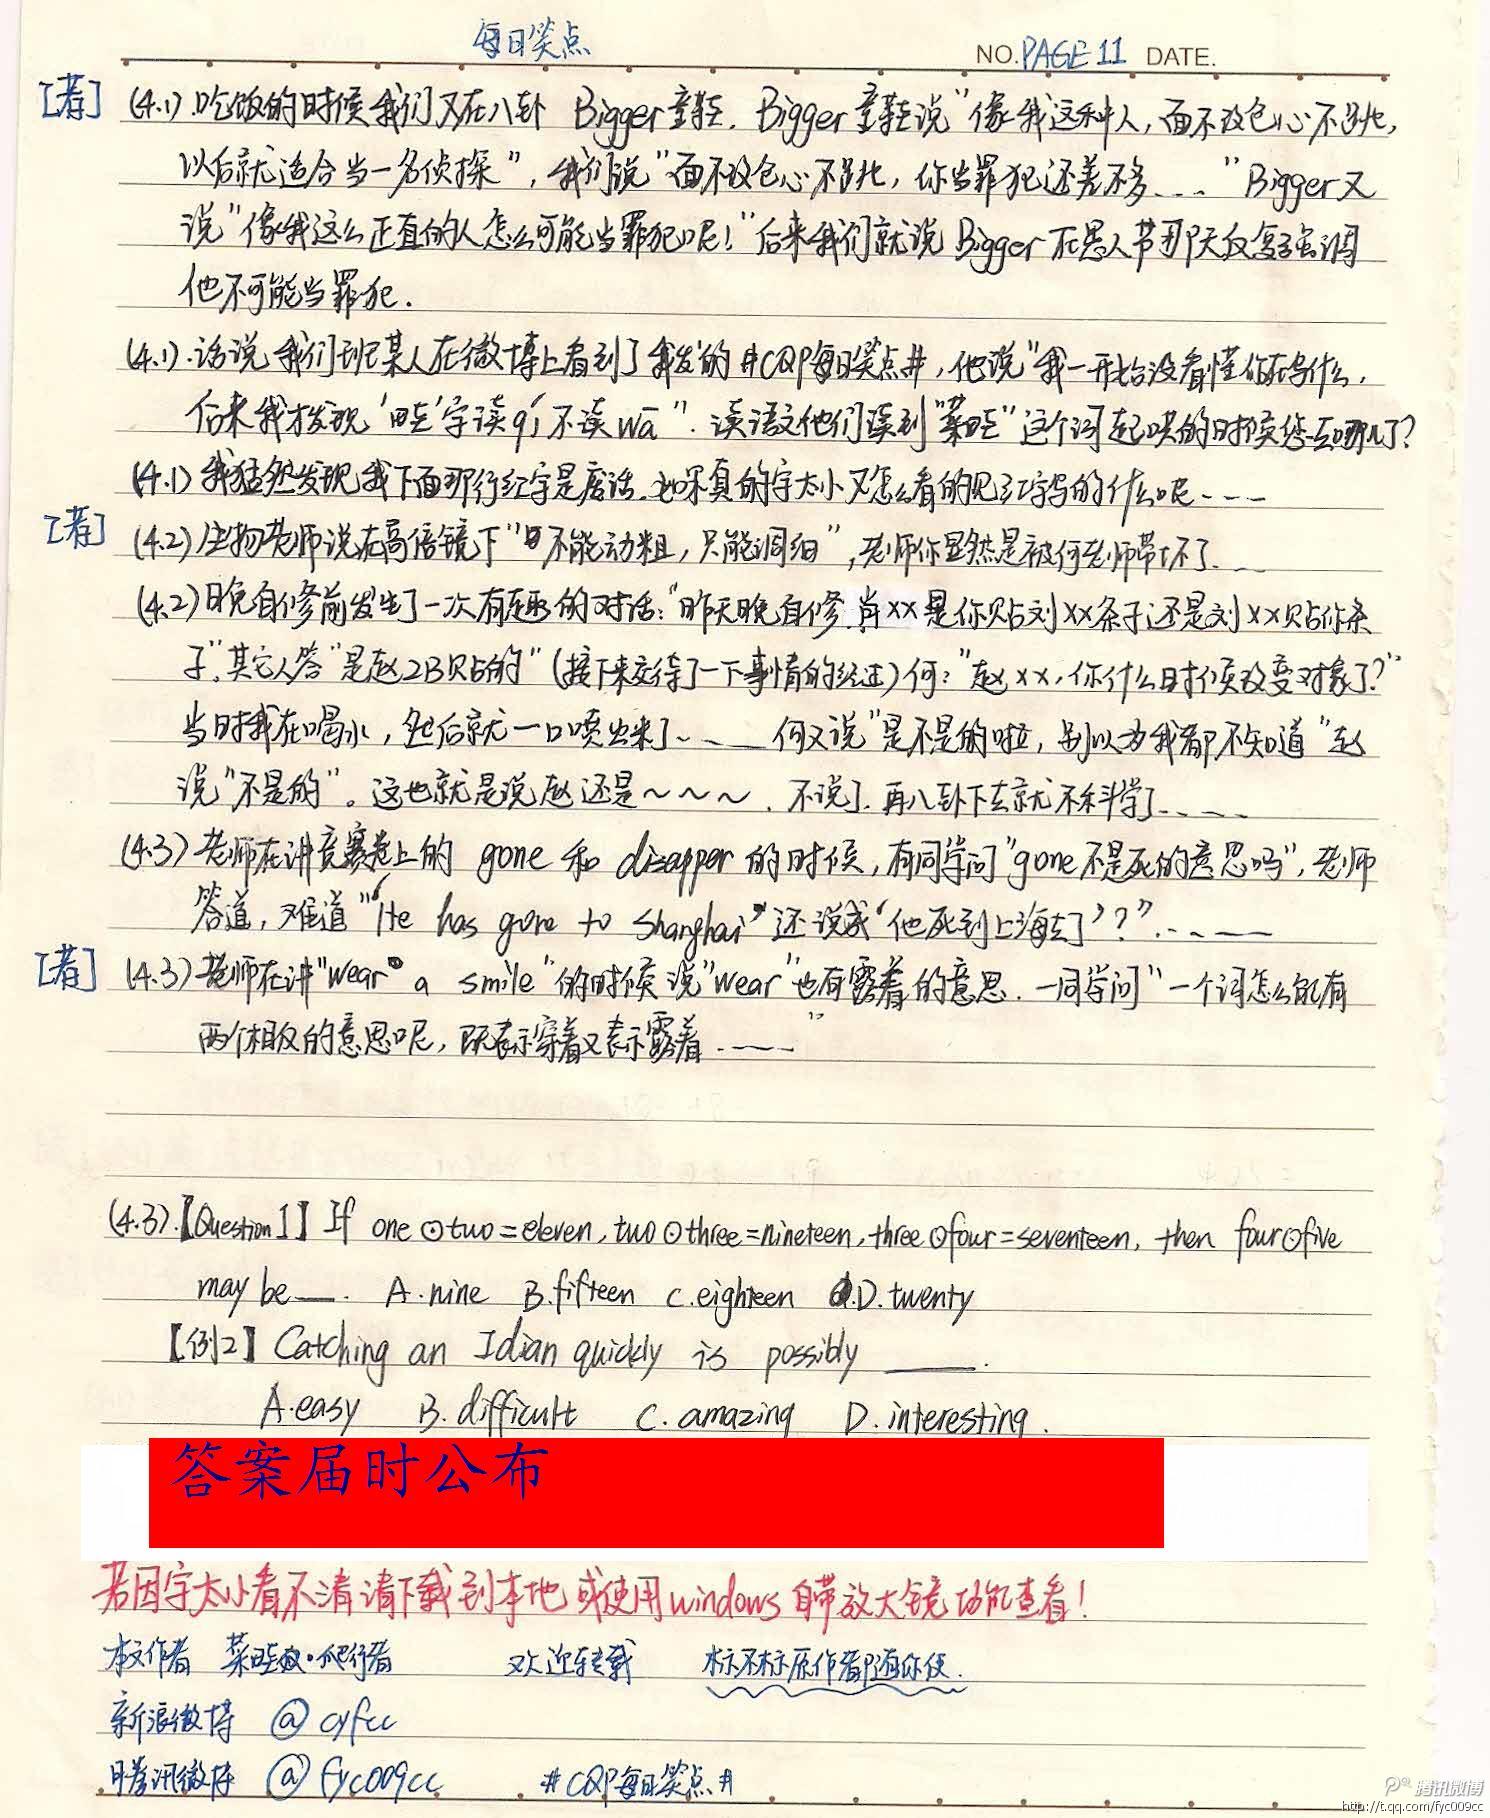 每日笑点
NO. PAGE 11 DATE.
[荐] (4.1).吃饭的时候我们又在八卦 Bigger童鞋. Bigger童鞋说"像我这种人,面不改色心不跳,
以后就适合当一名侦探",我们说"面不改色心不跳,你当罪犯还差不多……"Bigger又
说"像我这么正直的人怎么可能当罪犯呢!"后来我们就说Bigger在愚人节那天反复强调
他不可能当罪犯.
(4.1).话说我们班某人在微博上看到了我发的#CQP每日笑点#,他说"我一开始没看懂你在写什么,
后来我才发现'畦'字读qí不读wā".读语文他们读到"菜畦"这个词起哄的时候您去哪儿了?
(4.1)我猛然发现我下面那行红字是废话.如果真的字太小又怎么看的见红字写的什么呢……
[荐] (4.2)生物老师说在高倍镜下"不能动粗,只能调细",老师你显然是被何老师带坏了……
(4.2)晚自修前发生了一次有趣的对话:"昨天晚自修.肖××是你贴刘××条子还是刘××贴你条
子".其它人答"是赵2B贴的"(接下来交待了一下事情的经过)何:"赵××,你什么时候改变对象了?"
当时我在喝水,然后就一口喷出来了……何又说"是不是的啦,别以为我都不知道"赵
说"不是的"。这也就是说赵还是~~~.不说了.再八卦下去就不科学了……
(4.3)老师在讲竞赛卷上的 gone 和 disapper 的时候,有同学问"gone不是死的意思吗",老师
答道,难道"He has gone to Shanghai"还说成'他死到上海去了'?"……
[荐] (4.3)老师在讲"wear a smile"的时候说"wear"也有露着的意思.一同学问"一个词怎么能有
两个相反的意思呢,既表示穿着又表示露着……"
(4.3).【Question 1】If one⊙two=eleven, two⊙three=nineteen, three⊙four=seventeen, then four⊙five
may be __. A.nine B.fifteen C.eighteen D.twenty
【例2】Catching an Idian quickly is possibly ____.
A.easy B.difficult C.amazing D.interesting.
答案届时公布
若因字太小看不清请下载到本地或使用windows自带放大镜功能查看!
本文作者 菜畦·爬行者 欢迎转载 标不标原作者都随你便.
新浪微博 @cyfcc
腾讯微博 @fyc009cc #CQP每日笑点#
腾讯微博
http://t.qq.com/fyc009cc